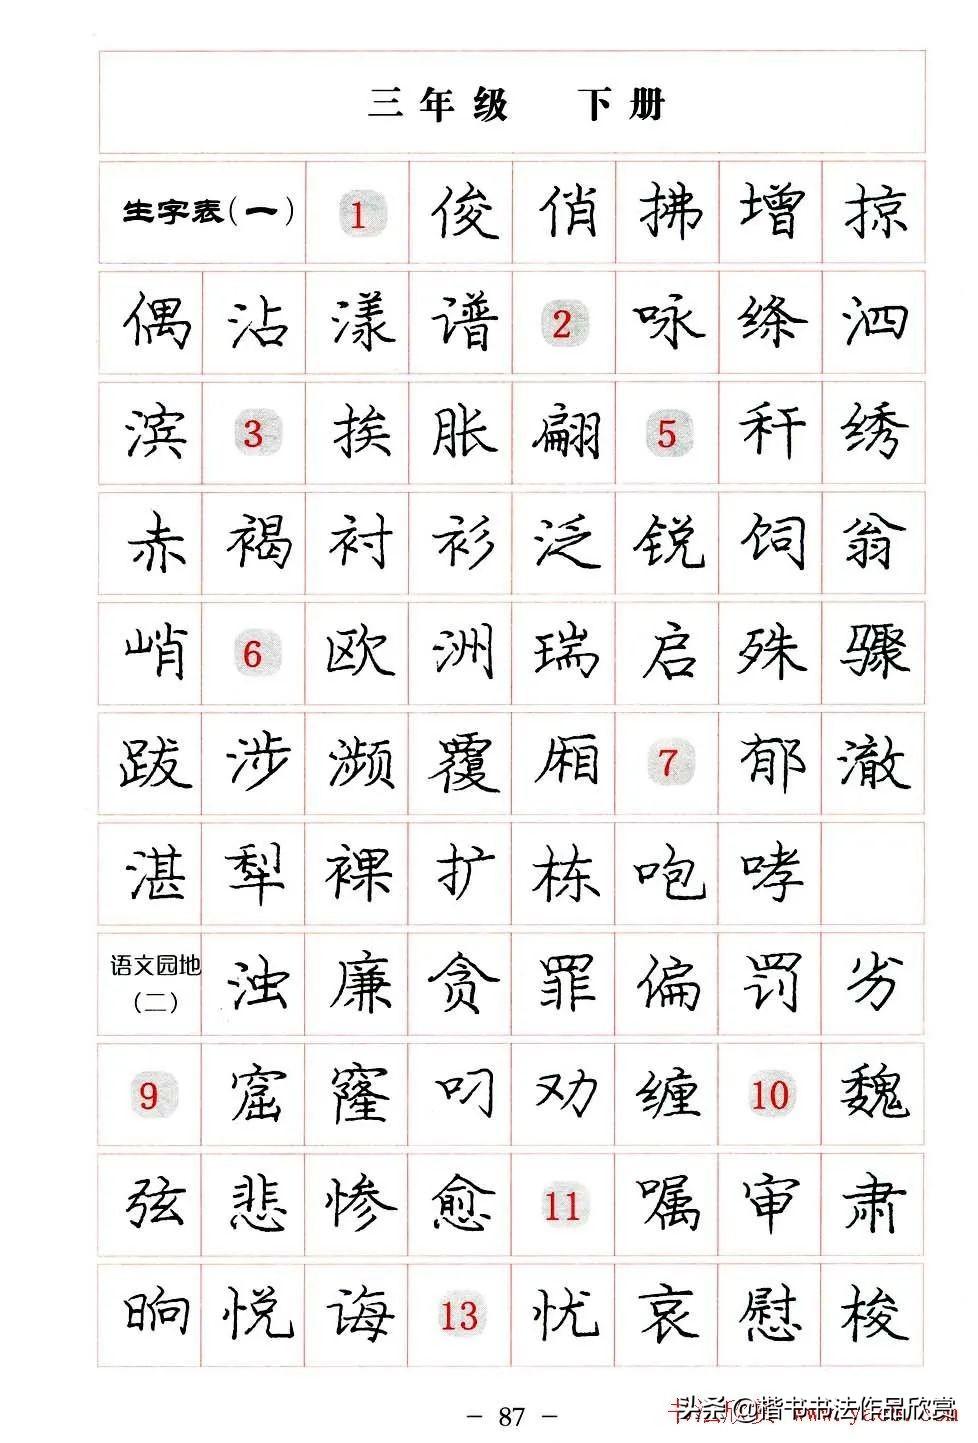 三年级 下册
生字表(一) 1 俊 俏 拂 增 掠
偶 沾 漾 谱 2 咏 绦 泗
滨 3 挨 胀 翩 5 秆 绣
赤 褐 衬 衫 泛 锐 饲 翁
峭 6 欧 洲 瑞 启 殊 骤
跋 涉 濒 覆 厢 7 郁 澈
湛 犁 裸 扩 栋 咆 哮
语文园地(二) 浊 廉 贪 罪 偏 罚 劣
9 窟 窿 叼 劝 缠 10 魏
弦 悲 惨 愈 11 嘱 审 肃
晌 悦 诲 13 忧 哀 慰 梭
- 87 -
头条@楷书书法作品欣赏